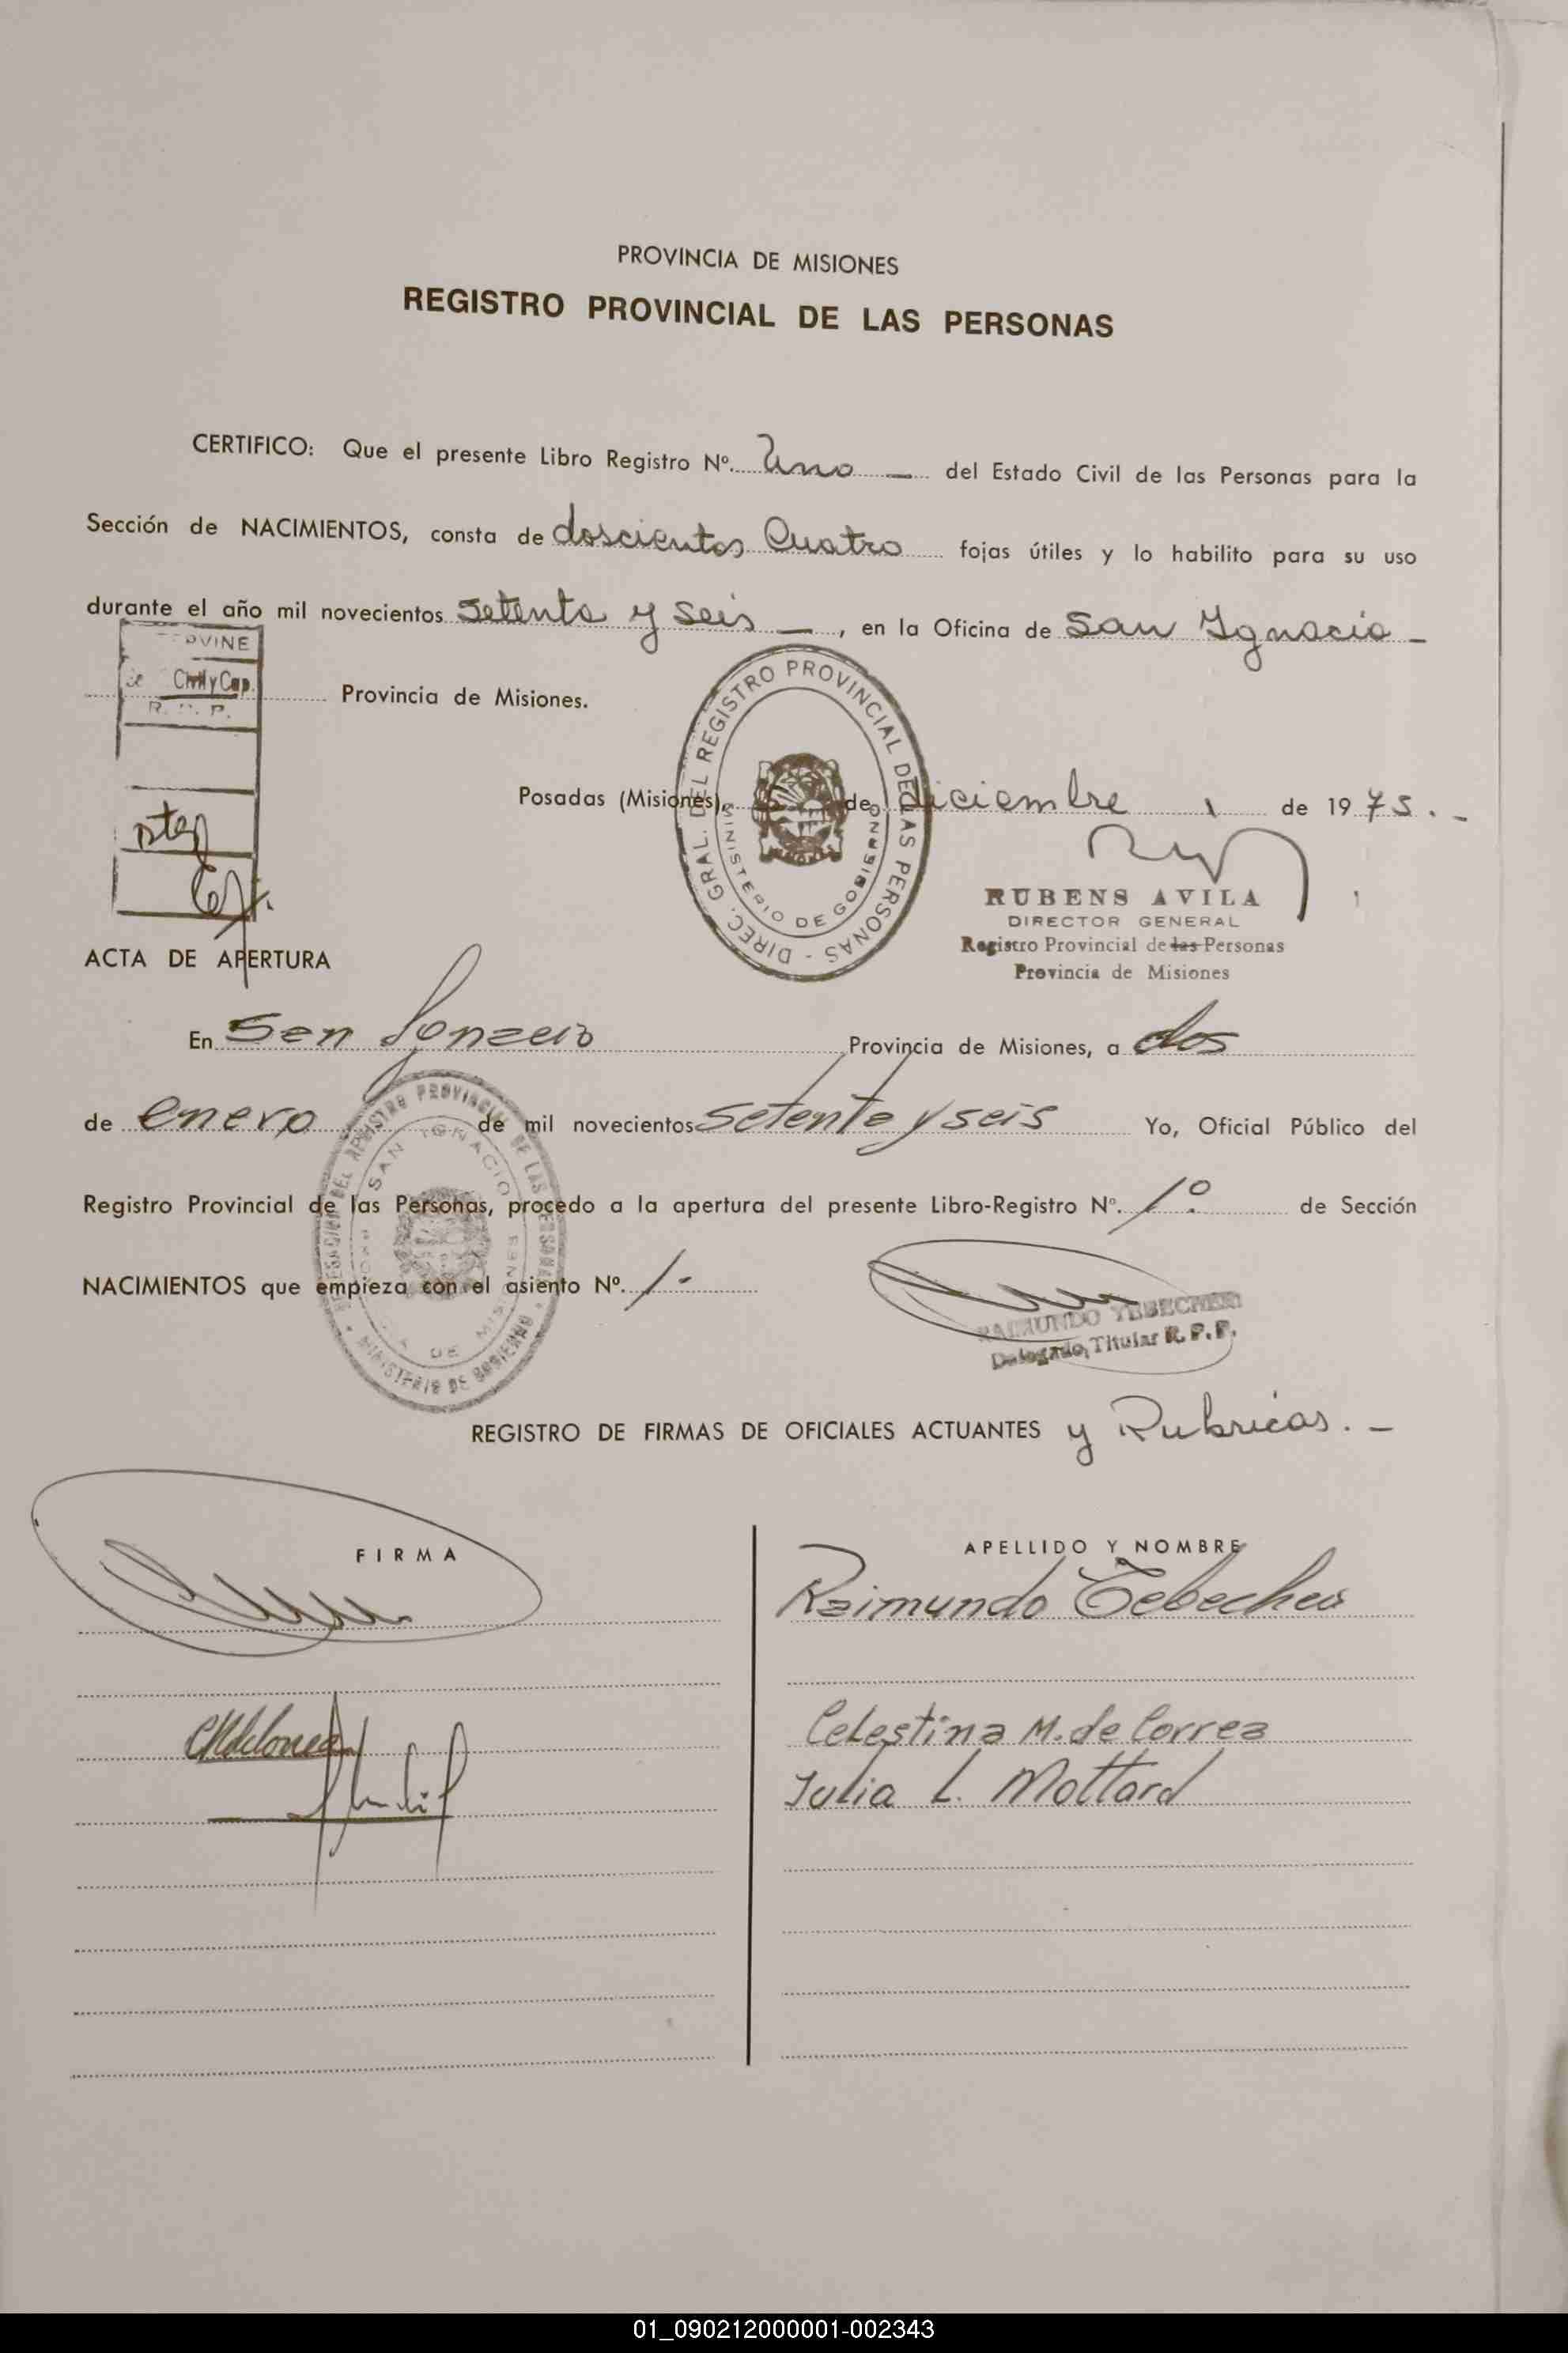 PROVINCIA DE MISIONES
REGISTRO PROVINCIAL DE LAS PERSONAS
CERTIFICO: Que el presente Libro Registro Nº. Uno — del Estado Civil de las Personas para la
Sección de NACIMIENTOS, consta de doscientos Cuatro fojas útiles y lo habilito para su uso
durante el año mil novecientos setenta y seis —, en la Oficina de San Ignacio —
Provincia de Misiones.
Civil y Cap.
R. P. P.
Posadas (Misiones), de diciembre de 1975.-
DIREC. GRAL. DEL REGISTRO PROVINCIAL DE LAS PERSONAS -
MINISTERIO DE GOBIERNO
RUBENS AVILA
DIRECTOR GENERAL
Registro Provincial de las Personas
Provincia de Misiones
ACTA DE APERTURA
En San Ignacio Provincia de Misiones, a dos
de enero de mil novecientos setenta y seis Yo, Oficial Público del
Registro Provincial de las Personas, procedo a la apertura del presente Libro-Registro Nº. 1º de Sección
NACIMIENTOS que empieza con el asiento Nº. 1-
DEL REGISTRO PROVINCIAL DE LAS PERSONAS
SAN IGNACIO
MINISTERIO DE GOBIERNO
RAIMUNDO
Delegado Titular R. P. P.
REGISTRO DE FIRMAS DE OFICIALES ACTUANTES y Rubricas.-
FIRMA
APELLIDO Y NOMBRE
Raimundo
Celestina M. de Correa
Julia L. Mottard
01_090212000001-002343